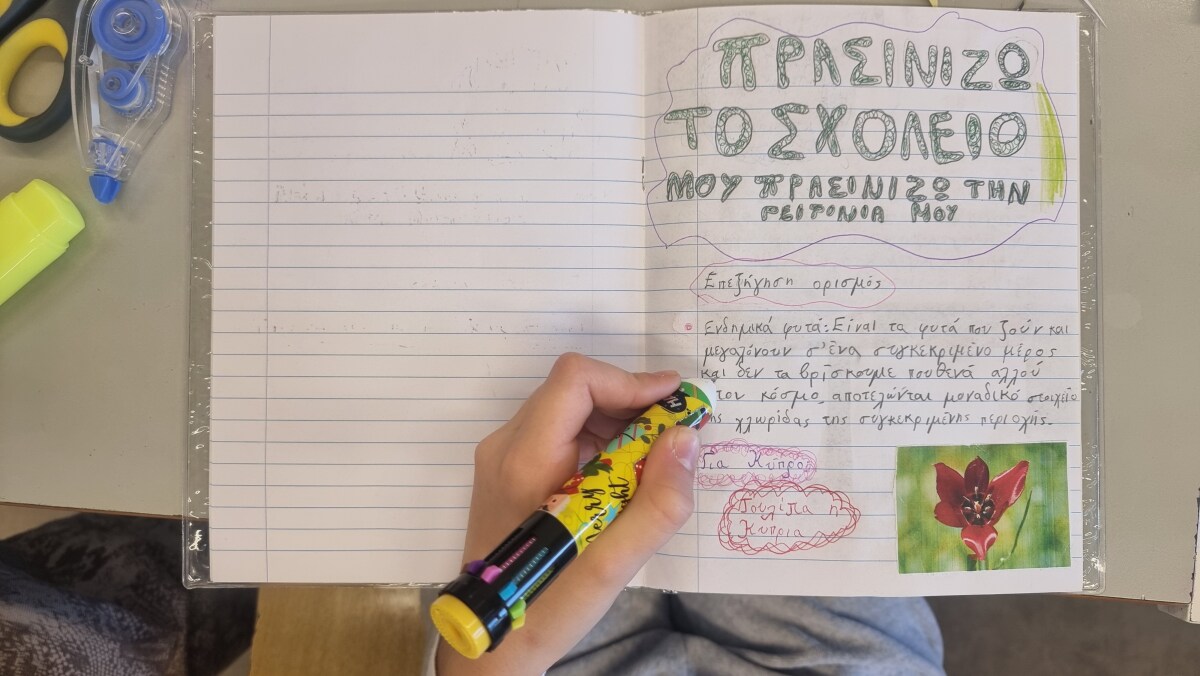 ΠΡΑΣΙΝΙΖΩ
ΤΟ ΣΧΟΛΕΙΟ
ΜΟΥ ΠΡΑΣΙΝΙΖΩ ΤΗΝ
ΓΕΙΤΟΝΙΑ ΜΟΥ
Επεξήγηση ορισμός
Ενδημικά φυτά: Είναι τα φυτά που ζούν και
μεγαλόνουν σ'ένα συγκεκριμένο μέρος
και δεν τα βρίσκουμε πουθενά αλλού
τον κόσμο αποτελώνται μοναδικό στοιχείο
ης χλωρίδας της συγκεκριμένης περιοχής.
Για Κύπρο
Τουλίπα η
Κυπρια